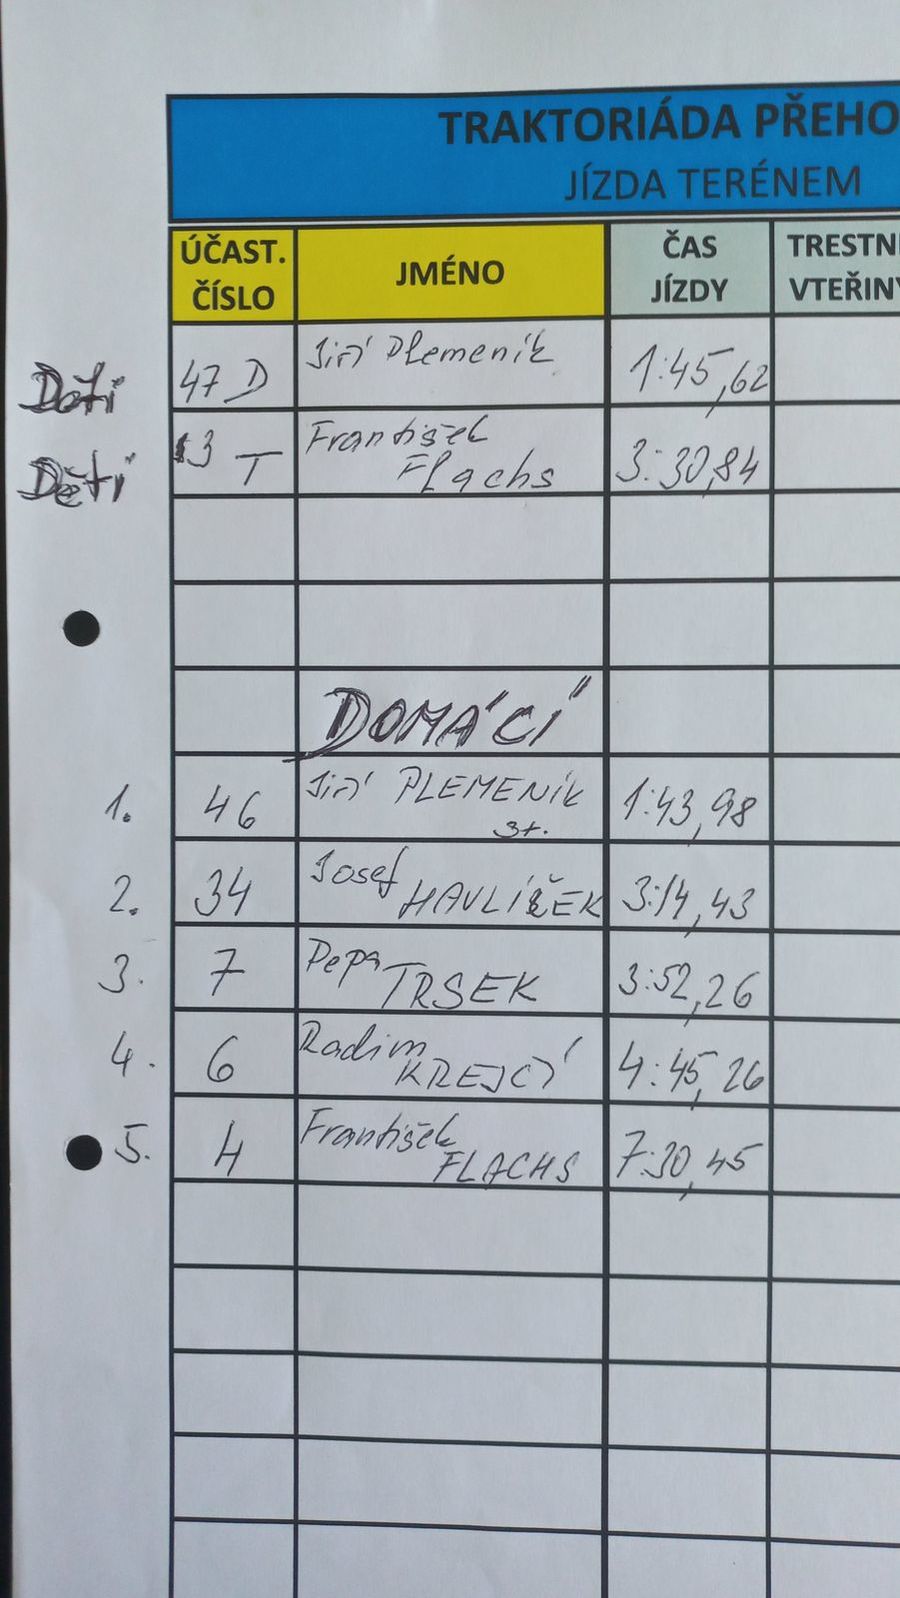 TRAKTORIÁDA PŘEHO
JÍZDA TERÉNEM
ÚČAST. ČÍSLO
JMÉNO
ČAS JÍZDY
TRESTN
VTEŘINY
Děti 47 D Jiří Plemeník 1:45,62
Děti 3 T František Flachs 3:30,84
DOMÁCÍ
1. 46 Jiří PLEMENÍK st. 1:43,98
2. 34 Josef HAVLÍČEK 3:14,43
3. 7 Pepa TRSEK 3:52,26
4. 6 Radim KREJČÍ 4:45,26
5. 4 František FLACHS 7:30,45